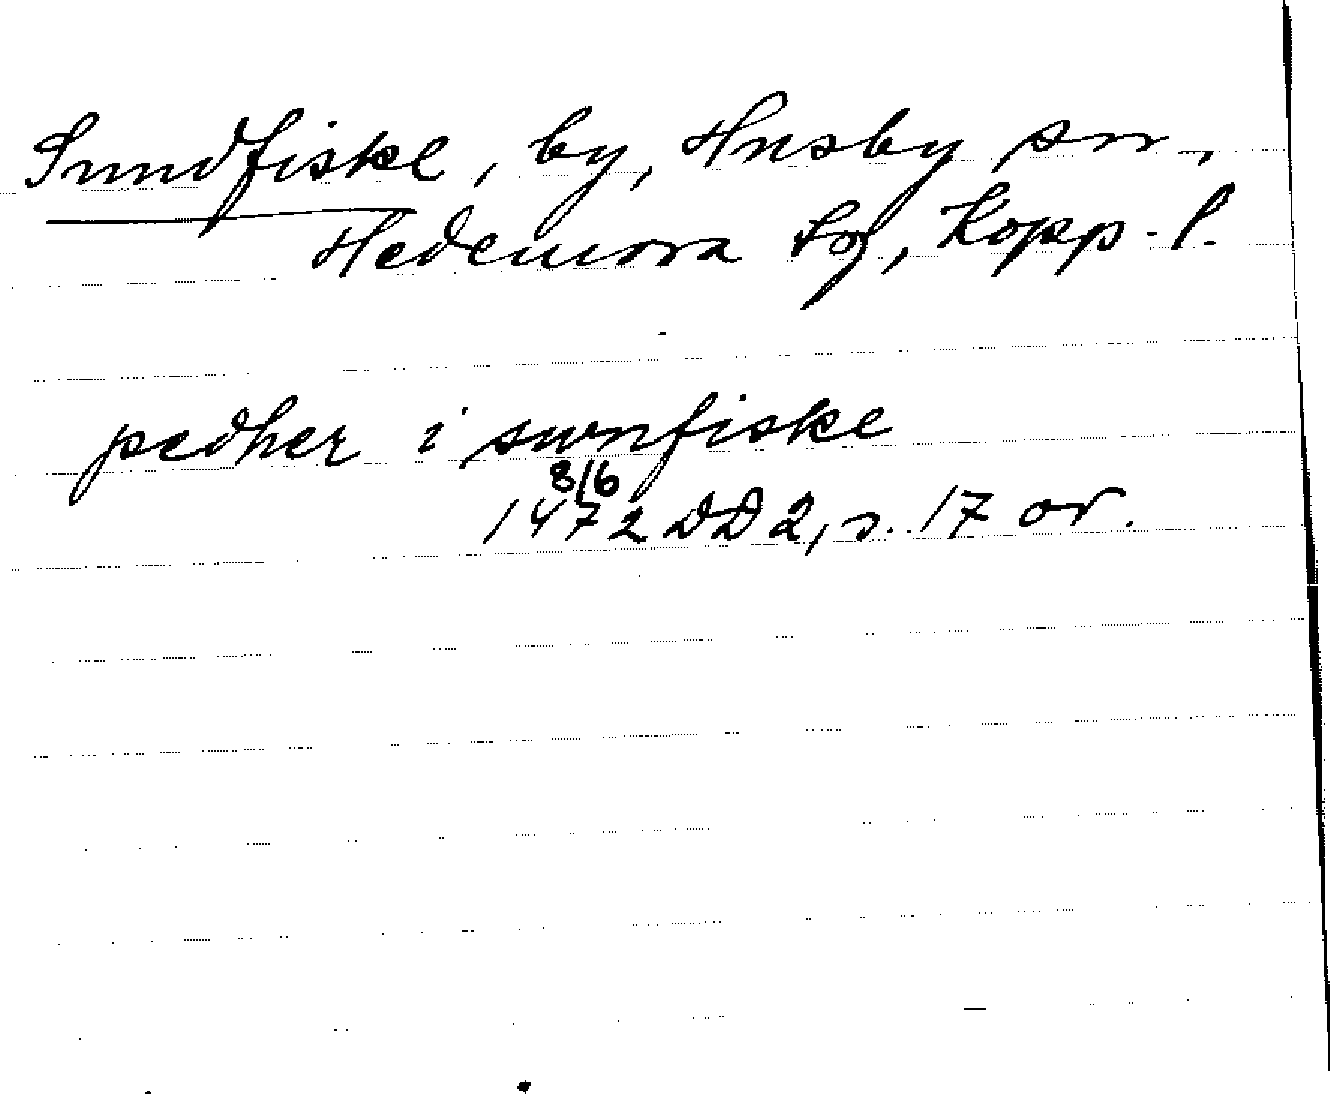 Sundfiske, by, Husby sn,
Hedemora tg, Kopp. l.
pedher i swnfiske
8/6
1472 DD 2, s. 17 or.